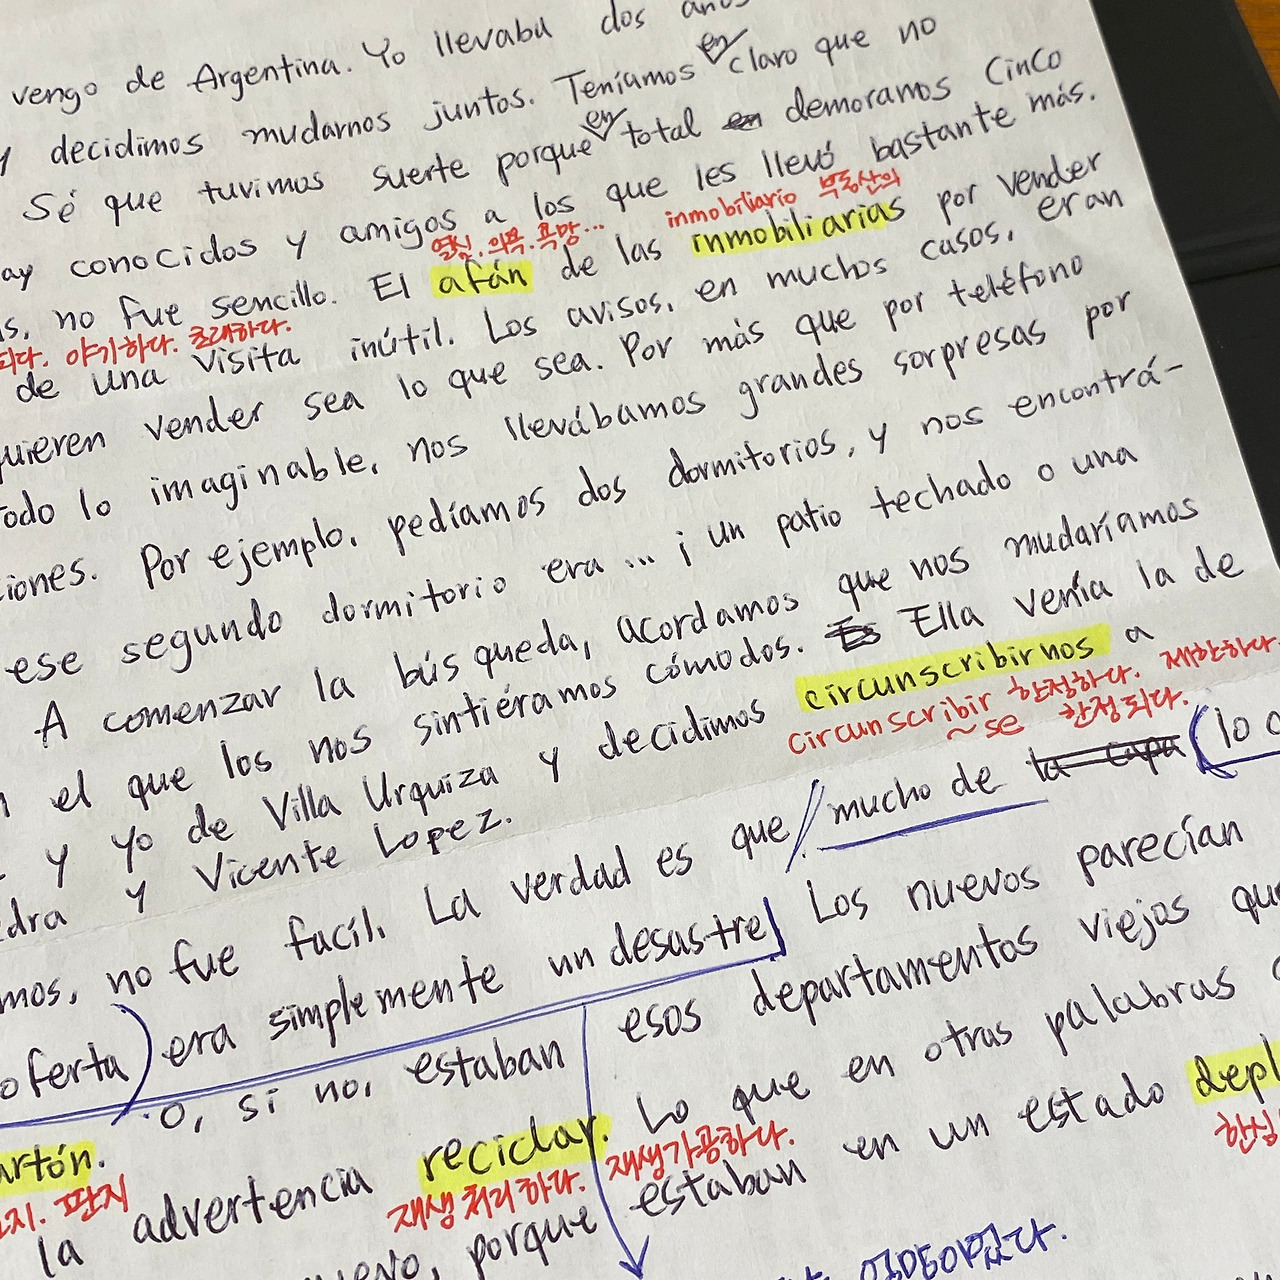 vengo de Argentina. Yo llevaba dos años
y decidimos mudarnos juntos. Teníamos en claro que no
Sé que tuvimos suerte porque en total demoramos cinco
ay conocidos y amigos a los que les llevó bastante más.
열심. 의욕. 욕망... inmobiliario 부동산의
s, no fue sencillo. El afán de las inmobiliarias por vender
되다. 야기하다. 초래하다.
de una visita inútil. Los avisos, en muchos casos, eran
quieren vender sea lo que sea. Por más que por teléfono
odo lo imaginable, nos llevábamos grandes sorpresas por
ciones. Por ejemplo, pedíamos dos dormitorios, y nos encontrá-
ese segundo dormitorio era... ¡un patio techado o una
A comenzar la búsqueda, acordamos que nos mudaríamos
n el que los nos sintiéramos cómodos. Ella venía la de
y yo de Villa Urquiza y decidimos circunscribirnos a
circunscribir 한정하다. 제한하다.
~se 한정되다.
edra y Vicente Lopez.
mos, no fue facíl. La verdad es que mucho de lo
oferta) era simplemente un desastre Los nuevos parecían
artón. O, si no, estaban esos departamentos viejos que
지. 판지
la advertencia reciclar. Lo que en otras palabras
재생처리하다. 재생가공하다.
porque estaban en un estado depl
한심